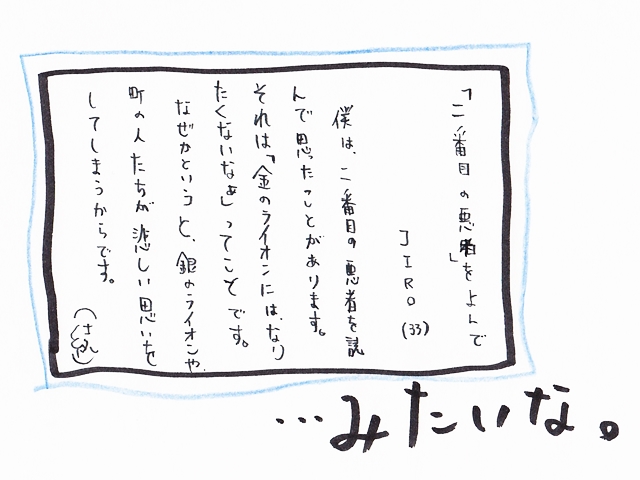 「二番目の悪者」をよんで
JIRO(33)
僕は、二番目の悪者を読
んで思ったことがあります。
それは「金のライオンには、なり
たくないなぁ」ってことです。
なぜかというと、銀のライオンや
町の人たちが悲しい思いを
してしまうからです。
…みたいな。